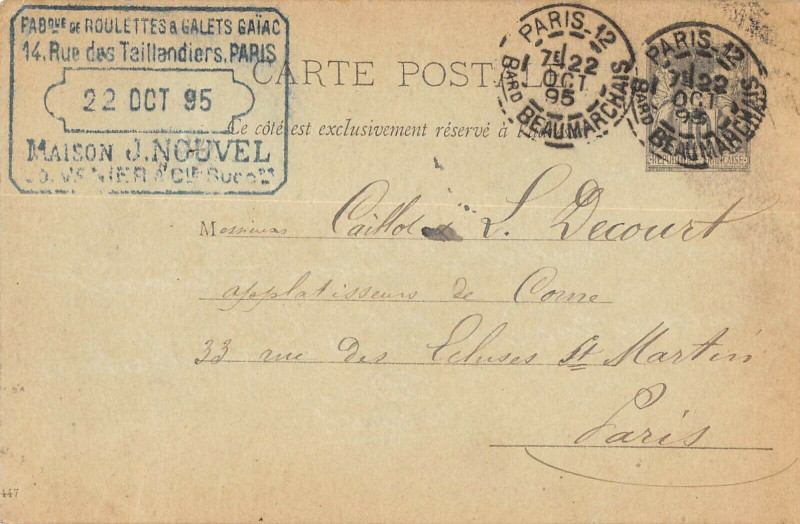 FABque DE ROULETTES & GALETS GAÏAC
14, Rue des Taillandiers, PARIS
22 OCT 95
MAISON J. NOUVEL
VENIER & Cie Succrs
CARTE POSTALE
Ce côté est exclusivement réservé à
PARIS-12
7E 22
OCT
95
BARD BEAUMARCHAIS
PARIS-12
7E 22
OCT
95
BARD BEAUMARCHAIS
Messieurs Caillol & L. Decourt
applatisseurs de Corne
33 rue des Ecluses St Martin
Paris
447